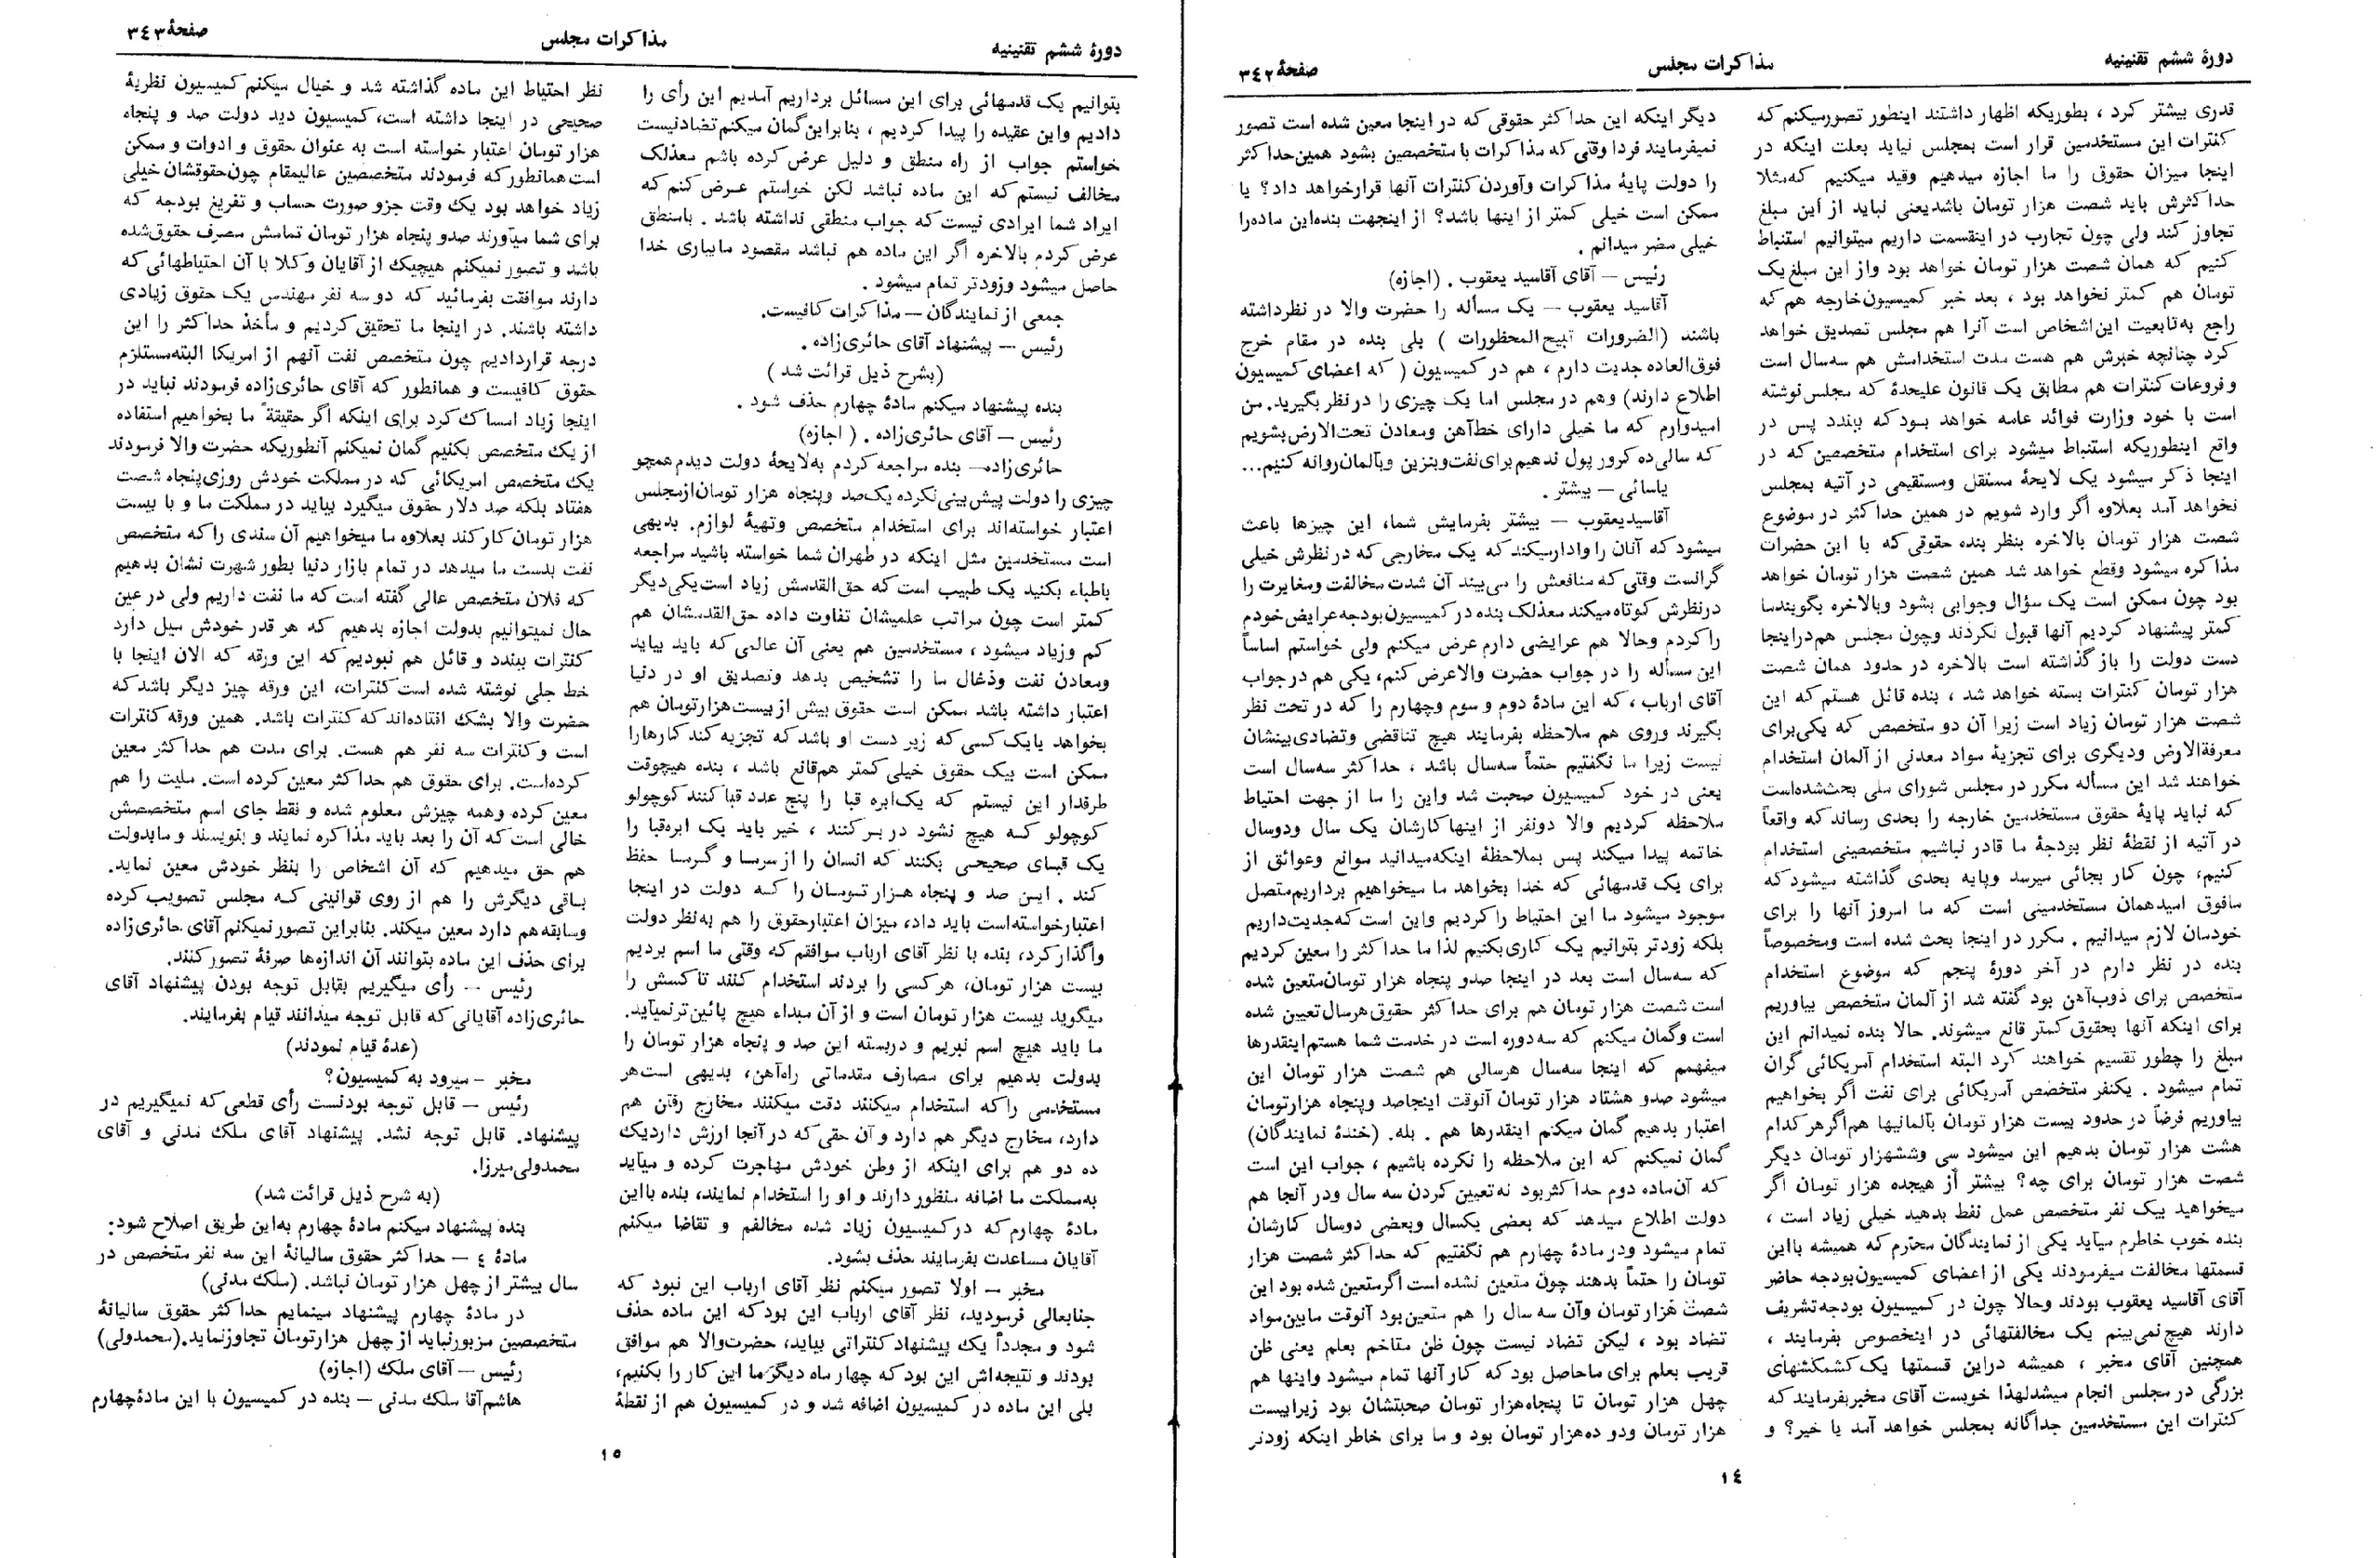 دورهٔ ششم تقنینیه
مذاکرات مجلس
صفحهٔ ۳٤۲
قدری بیشتر کرد ، بطوریکه اظهار داشتند اینطور تصورمیکنم که
کنترات این مستخدمین قرار است بمجلس نیاید بعلت اینکه در
اینجا میزان حقوق را ما اجازه میدهیم وقید میکنیم که‌مثلا
حداکثرش باید شصت هزار تومان باشدیعنی نباید از این مبلغ
تجاوز کند ولی چون تجارب در اینقسمت داریم میتوانیم استنباط
کنیم که همان شصت هزار تومان خواهد بود واز این مبلغ یک
تومان هم کمتر نخواهد بود ، بعد خبر کمیسیون‌خارجه هم که
راجع به‌تابعیت این‌اشخاص است آنرا هم مجلس تصدیق خواهد
کرد چنانچه خبرش هم هست مدت استخدامش هم سه‌سال است
و فروعات کنترات هم مطابق یک قانون علیحدهٔ که مجلس نوشته
است با خود وزارت فوائد عامه خواهد بود که ببندد پس در
واقع اینطوریکه استنباط میشود برای استخدام متخصصین که در
اینجا ذکر میشود یک لایحهٔ مستقل ومستقیمی در آتیه بمجلس
نخواهد آمد بعلاوه اگر وارد شویم در همین حداکثر در موضوع
شصت هزار تومان بالاخره بنظر بنده حقوقی که با این حضرات
مذاکره میشود وقطع خواهد شد همین شصت هزار تومان خواهد
بود چون ممکن است یک سؤال وجوابی بشود وبالاخره بگویندما
کمتر پیشنهاد کردیم آنها قبول نکردند وچون مجلس هم‌دراینجا
دست دولت را باز گذاشته است بالاخره در حدود همان شصت
هزار تومان کنترات بسته خواهد شد ، بنده قائل هستم که این
شصت هزار تومان زیاد است زیرا آن دو متخصص که یکی‌برای
معرفةالارض ودیگری برای تجزیهٔ مواد معدنی از آلمان استخدام
خواهند شد این مسأله مکرر در مجلس شورای ملی بحث‌شده‌است
که نباید پایهٔ حقوق مستخدمین خارجه را بحدی رساند که واقعاً
در آتیه از نقطهٔ نظر بودجهٔ ما قادر نباشیم متخصصینی استخدام
کنیم، چون کار بجائی میرسد وپایه بحدی گذاشته میشود که
مافوق امیدهمان مستخدمینی است که ما امروز آنها را برای
خودمان لازم میدانیم . مکرر در اینجا بحث شده است ومخصوصاً
بنده در نظر دارم در آخر دورهٔ پنجم که موضوع استخدام
متخصص برای ذوب‌آهن بود گفته شد از آلمان متخصص بیاوریم
برای اینکه آنها بحقوق کمتر قانع میشوند. حالا بنده نمیدانم این
مبلغ را چطور تقسیم خواهند کرد البته استخدام آمریکائی گران
تمام میشود . یکنفر متخصص آمریکائی برای نفت اگر بخواهیم
بیاوریم فرضاً در حدود بیست هزار تومان بآلمانیها هم‌اگرهر کدام
هشت هزار تومان بدهیم این میشود سی وششهزار تومان دیگر
شصت هزار تومان برای چه؟ بیشتر از هیجده هزار تومان اگر
میخواهید بیک نفر متخصص عمل نفط بدهید خیلی زیاد است ،
بنده خوب خاطرم میآید یکی از نمایندگان محترم که همیشه بااین
قسمتها مخالفت میفرمودند یکی از اعضای کمیسیون‌بودجه حاضر
آقای آقاسید یعقوب بودند وحالا چون در کمیسیون بودجه‌تشریف
دارند هیچ‌نمی‌بینم یک مخالفتهائی در اینخصوص بفرمایند ،
همچنین آقای مخبر ، همیشه دراین قسمتها یک کشمکشهای
بزرگی در مجلس انجام میشدلهذا خوبست آقای مخبربفرمایند که
کنترات این مستخدمین جداگانه بمجلس خواهد آمد یا خیر؟ و
دیگر اینکه این حداکثر حقوقی که در اینجا معین شده است تصور
نمیفرمایند فردا وقتی که مذاکرات با متخصصین بشود همین‌حداکثر
را دولت پایهٔ مذاکرات وآوردن کنترات آنها قرارخواهد داد؟ یا
ممکن است خیلی کمتر از اینها باشد؟ از اینجهت بنده‌این ماده‌را
خیلی مضر میدانم .
رئیس — آقای آقاسید یعقوب . (اجازه)
آقاسید یعقوب — یک مسأله را حضرت والا در نظرداشته
باشند (الضرورات تبیح‌المحظورات ) بلی بنده در مقام خرج
فوق‌العاده جدیت دارم ، هم در کمیسیون ( که اعضای کمیسیون
اطلاع دارند) وهم در مجلس اما یک چیزی را در نظر بگیرید. من
امیدوارم که ما خیلی دارای خط‌آهن ومعادن تحت‌الارض‌بشویم
که سالی‌ده کرور پول ندهیم‌برای‌نفت‌وبنزین وبآلمان‌روانه کنیم...
یاسائی — بیشتر .
آقاسیدیعقوب — بیشتر بفرمایش شما، این چیزها باعث
میشود که آنان را وادارمیکند که یک مخارجی که در نظرش خیلی
گرانست وقتی که منافعش را می‌بیند آن شدت مخالفت ومغایرت را
درنظرش کوتاه میکند معذلک بنده در کمیسیون‌بودجه‌عرایض‌خودم
را کردم وحالا هم عرایضی دارم عرض میکنم ولی خواستم اساساً
این مسأله را در جواب حضرت والاعرض کنم، یکی هم درجواب
آقای ارباب ، که این مادهٔ دوم و سوم وچهارم را که در تحت نظر
بگیرند وروی هم ملاحظه بفرمایند هیچ تناقضی وتضادی‌بینشان
نیست زیرا ما نگفتیم حتماً سه‌سال باشد ، حداکثر سه‌سال است
یعنی در خود کمیسیون صحبت شد واین را ما از جهت احتیاط
ملاحظه کردیم والا دونفر از اینها کارشان یک سال ودوسال
خاتمه پیدا میکند پس بملاحظهٔ اینکه‌میدانید موانع وعوائق از
برای یک قدمهائی که خدا بخواهد ما میخواهیم برداریم‌متصل
موجود میشود ما این احتیاط را کردیم واین است که‌جدیت‌داریم
بلکه زودتر بتوانیم یک کاری‌بکنیم لذا ما حداکثر را معین کردیم
که سه‌سال است بعد در اینجا صدو پنجاه هزار تومان‌متعین شده
است شصت هزار تومان هم برای حداکثر حقوق‌هرسال‌تعیین شده
است وگمان میکنم که سه‌دوره است در خدمت شما هستم‌اینقدرها
میفهمم که اینجا سه‌سال هرسالی هم شصت هزار تومان این
میشود صدو هشتاد هزار تومان آنوقت اینجاصد وپنجاه هزارتومان
اعتبار بدهیم گمان میکنم اینقدرها هم . بله. (خندهٔ نمایندگان)
گمان نمیکنم که این ملاحظه را نکرده باشیم ، جواب این است
که آن‌ماده دوم حداکثربود نه‌تعیین کردن سه سال ودر آنجا هم
دولت اطلاع میدهد که بعضی یکسال وبعضی دوسال کارشان
تمام میشود ودر مادهٔ چهارم هم نگفتیم که حداکثر شصت هزار
تومان را حتماً بدهند چون متعین نشده است اگرمتعین شده بود این
شصت هزار تومان وآن سه سال را هم متعین‌بود آنوقت مابین‌مواد
تضاد بود ، لیکن تضاد نیست چون ظن متاخم بعلم یعنی ظن
قریب بعلم برای ماحاصل بود که کار آنها تمام میشود واینها هم
چهل هزار تومان تا پنجاه‌هزار تومان صحبتشان بود زیرابیست
هزار تومان ودو ده‌هزار تومان بود و ما برای خاطر اینکه زودتر
۱٤
دورهٔ ششم تقنینیه
مذاکرات مجلس
صفحهٔ ۳٤۳
بتوانیم یک قدمهائی برای این مسائل برداریم آمدیم این رأی را
دادیم واین عقیده را پیدا کردیم ، بنابراین‌گمان میکنم‌تضادنیست
خواستم جواب از راه منطق و دلیل عرض کرده باشم معذلک
مخالف نیستم که این ماده نباشد لکن خواستم عرض کنم که
ایراد شما ایرادی نیست که جواب منطقی نداشته باشد . بامنطق
عرض کردم بالاخره اگر این ماده هم نباشد مقصود مابیاری خدا
حاصل میشود وزودتر تمام میشود .
جمعی از نمایندگان — مذاکرات کافیست.
رئیس — پیشنهاد آقای حائری‌زاده .
(بشرح ذیل قرائت شد )
بنده پیشنهاد میکنم مادهٔ چهارم حذف شود .
رئیس — آقای حائری‌زاده . ( اجازه)
حائری‌زاده— بنده مراجعه کردم به‌لایحهٔ دولت دیدم همچو
چیزی را دولت پیش‌بینی‌نکرده یک‌صد وپنجاه هزار تومان‌ازمجلس
اعتبار خواسته‌اند برای استخدام متخصص وتهیهٔ لوازم. بدیهی
است مستخدمین مثل اینکه در طهران شما خواسته باشید مراجعه
باطباء بکنید یک طبیب است که حق‌القدمش زیاد است‌یکی‌دیگر
کمتر است چون مراتب علمیشان تفاوت داده حق‌القدمشان هم
کم وزیاد میشود ، مستخدمین هم یعنی آن عالمی که باید بیاید
ومعادن نفت وذغال ما را تشخیص بدهد وتصدیق او در دنیا
اعتبار داشته باشد ممکن است حقوق بیش از بیست هزارتومان هم
بخواهد یایک کسی که زیر دست او باشد که تجزیه کند کارهارا
ممکن است بیک حقوق خیلی کمتر هم‌قانع باشد ، بنده هیچوقت
طرفدار این نیستم که یک‌ابره قبا را پنج عدد قبا کنند کوچولو
کوچولو که هیچ نشود در بر کنند ، خیر باید یک ابره‌قبا را
یک قبای صحیحی بکنند که انسان را از سرما و گرما حفظ
کند . این صد و پنجاه هزار تومان را که دولت در اینجا
اعتبارخواسته‌است باید داد، میزان اعتبارحقوق را هم به‌نظر دولت
واگذار کرد، بنده با نظر آقای ارباب موافقم که وقتی ما اسم بردیم
بیست هزار تومان، هر کسی را بردند استخدام کنند تاکسش را
میگوید بیست هزار تومان است و از آن مبداء هیچ پائین‌ترنمیآید.
ما باید هیچ اسم نبریم و دربسته این صد و پنجاه هزار تومان را
بدولت بدهیم برای مصارف مقدماتی راه‌آهن، بدیهی است‌هر
مستخدمی را که استخدام میکنند دقت میکنند مخارج رفتن هم
دارد، مخارج دیگر هم دارد و آن حقی که در آنجا ارزش داردیک
ده دو هم برای اینکه از وطن خودش مهاجرت کرده و میآید
به‌مملکت ما اضافه منظور دارند و او را استخدام نمایند، بنده بااین
مادهٔ چهارم که در کمیسیون زیاد شده مخالفم و تقاضا میکنم
آقایان مساعدت بفرمایند حذف بشود.
مخبر — اولا تصور میکنم نظر آقای ارباب این نبود که
جنابعالی فرمودید، نظر آقای ارباب این بود که این ماده حذف
شود و مجدداً یک پیشنهاد کنتراتی بیاید، حضرت‌والا هم موافق
بودند و نتیجه‌اش این بود که چهار ماه دیگر ما این کار را بکنیم،
بلی این ماده در کمیسیون اضافه شد و در کمیسیون هم از نقطهٔ
نظر احتیاط این ماده گذاشته شد و خیال میکنم کمیسیون نظریهٔ
صحیحی در اینجا داشته است، کمیسیون دید دولت صد و پنجاه
هزار تومان اعتبار خواسته است به عنوان حقوق و ادوات و ممکن
است همانطور که فرمودند متخصصین عالیمقام چون‌حقوقشان خیلی
زیاد خواهد بود یک وقت جزو صورت حساب و تفریغ بودجه که
برای شما میآورند صدو پنجاه هزار تومان تمامش مصرف حقوق‌شده
باشد و تصور نمیکنم هیچیک از آقایان وکلا با آن احتیاطهائی که
دارند موافقت بفرمائید که دو سه نفر مهندس یک حقوق زیادی
داشته باشند. در اینجا ما تحقیق کردیم و مأخذ حداکثر را این
درجه قراردادیم چون متخصص نفت آنهم از امریکا البته‌مستلزم
حقوق کافیست و همانطور که آقای حائری‌زاده فرمودند نباید در
اینجا زیاد امساک کرد برای اینکه اگر حقیقةً ما بخواهیم استفاده
از یک متخصص بکنیم گمان نمیکنم آنطوریکه حضرت والا فرمودند
یک متخصص امریکائی که در مملکت خودش روزی‌پنجاه شصت
هفتاد بلکه صد دلار حقوق میگیرد بیاید در مملکت ما و با بیست
هزار تومان کار کند بعلاوه ما میخواهیم آن سندی را که متخصص
نفت بدست ما میدهد در تمام بازار دنیا بطور شهرت نشان بدهیم
که فلان متخصص عالی گفته است که ما نفت داریم ولی در عین
حال نمیتوانیم بدولت اجازه بدهیم که هر قدر خودش میل دارد
کنترات ببندد و قائل هم نبودیم که این ورقه که الان اینجا با
خط جلی نوشته شده است کنترات، این ورقه چیز دیگر باشد که
حضرت والا بشک افتاده‌اند که کنترات باشد. همین ورقه کنترات
است و کنترات سه نفر هم هست. برای مدت هم حداکثر معین
کرده‌است. برای حقوق هم حداکثر معین کرده است. ملیت را هم
معین کرده وهمه چیزش معلوم شده و نقط جای اسم متخصصش
خالی است که آن را بعد باید مذاکره نمایند و بنویسند و مابدولت
هم حق میدهیم که آن اشخاص را بنظر خودش معین نماید.
باقی دیگرش را هم از روی قوانینی که مجلس تصویب کرده
وسابقه هم دارد معین میکند. بنابراین تصور نمیکنم آقای حائری‌زاده
برای حذف این ماده بتوانند آن اندازه‌ها صرفهٔ تصور کنند.
رئیس — رأی میگیریم بقابل توجه بودن پیشنهاد آقای
حائری‌زاده آقایانی که قابل توجه میدانند قیام بفرمایند.
(عدهٔ قیام نمودند)
مخبر — میرود به کمیسیون؟
رئیس — قابل توجه بودنست رأی قطعی که نمیگیریم در
پیشنهاد. قابل توجه نشد. پیشنهاد آقای ملک مدنی و آقای
محمدولی‌میرزا.
(به شرح ذیل قرائت شد)
بنده پیشنهاد میکنم مادهٔ چهارم به‌این طریق اصلاح شود:
مادهٔ ٤ — حداکثر حقوق سالیانهٔ این سه نفر متخصص در
سال بیشتر از چهل هزار تومان نباشد. (ملک مدنی)
در مادهٔ چهارم پیشنهاد مینمایم حداکثر حقوق سالیانهٔ
متخصصین مزبورنباید از چهل هزارتومان تجاوزنماید.(محمدولی)
رئیس — آقای ملک (اجازه)
هاشم‌آقا ملک مدنی — بنده در کمیسیون با این مادهٔ‌چهارم
۱٥